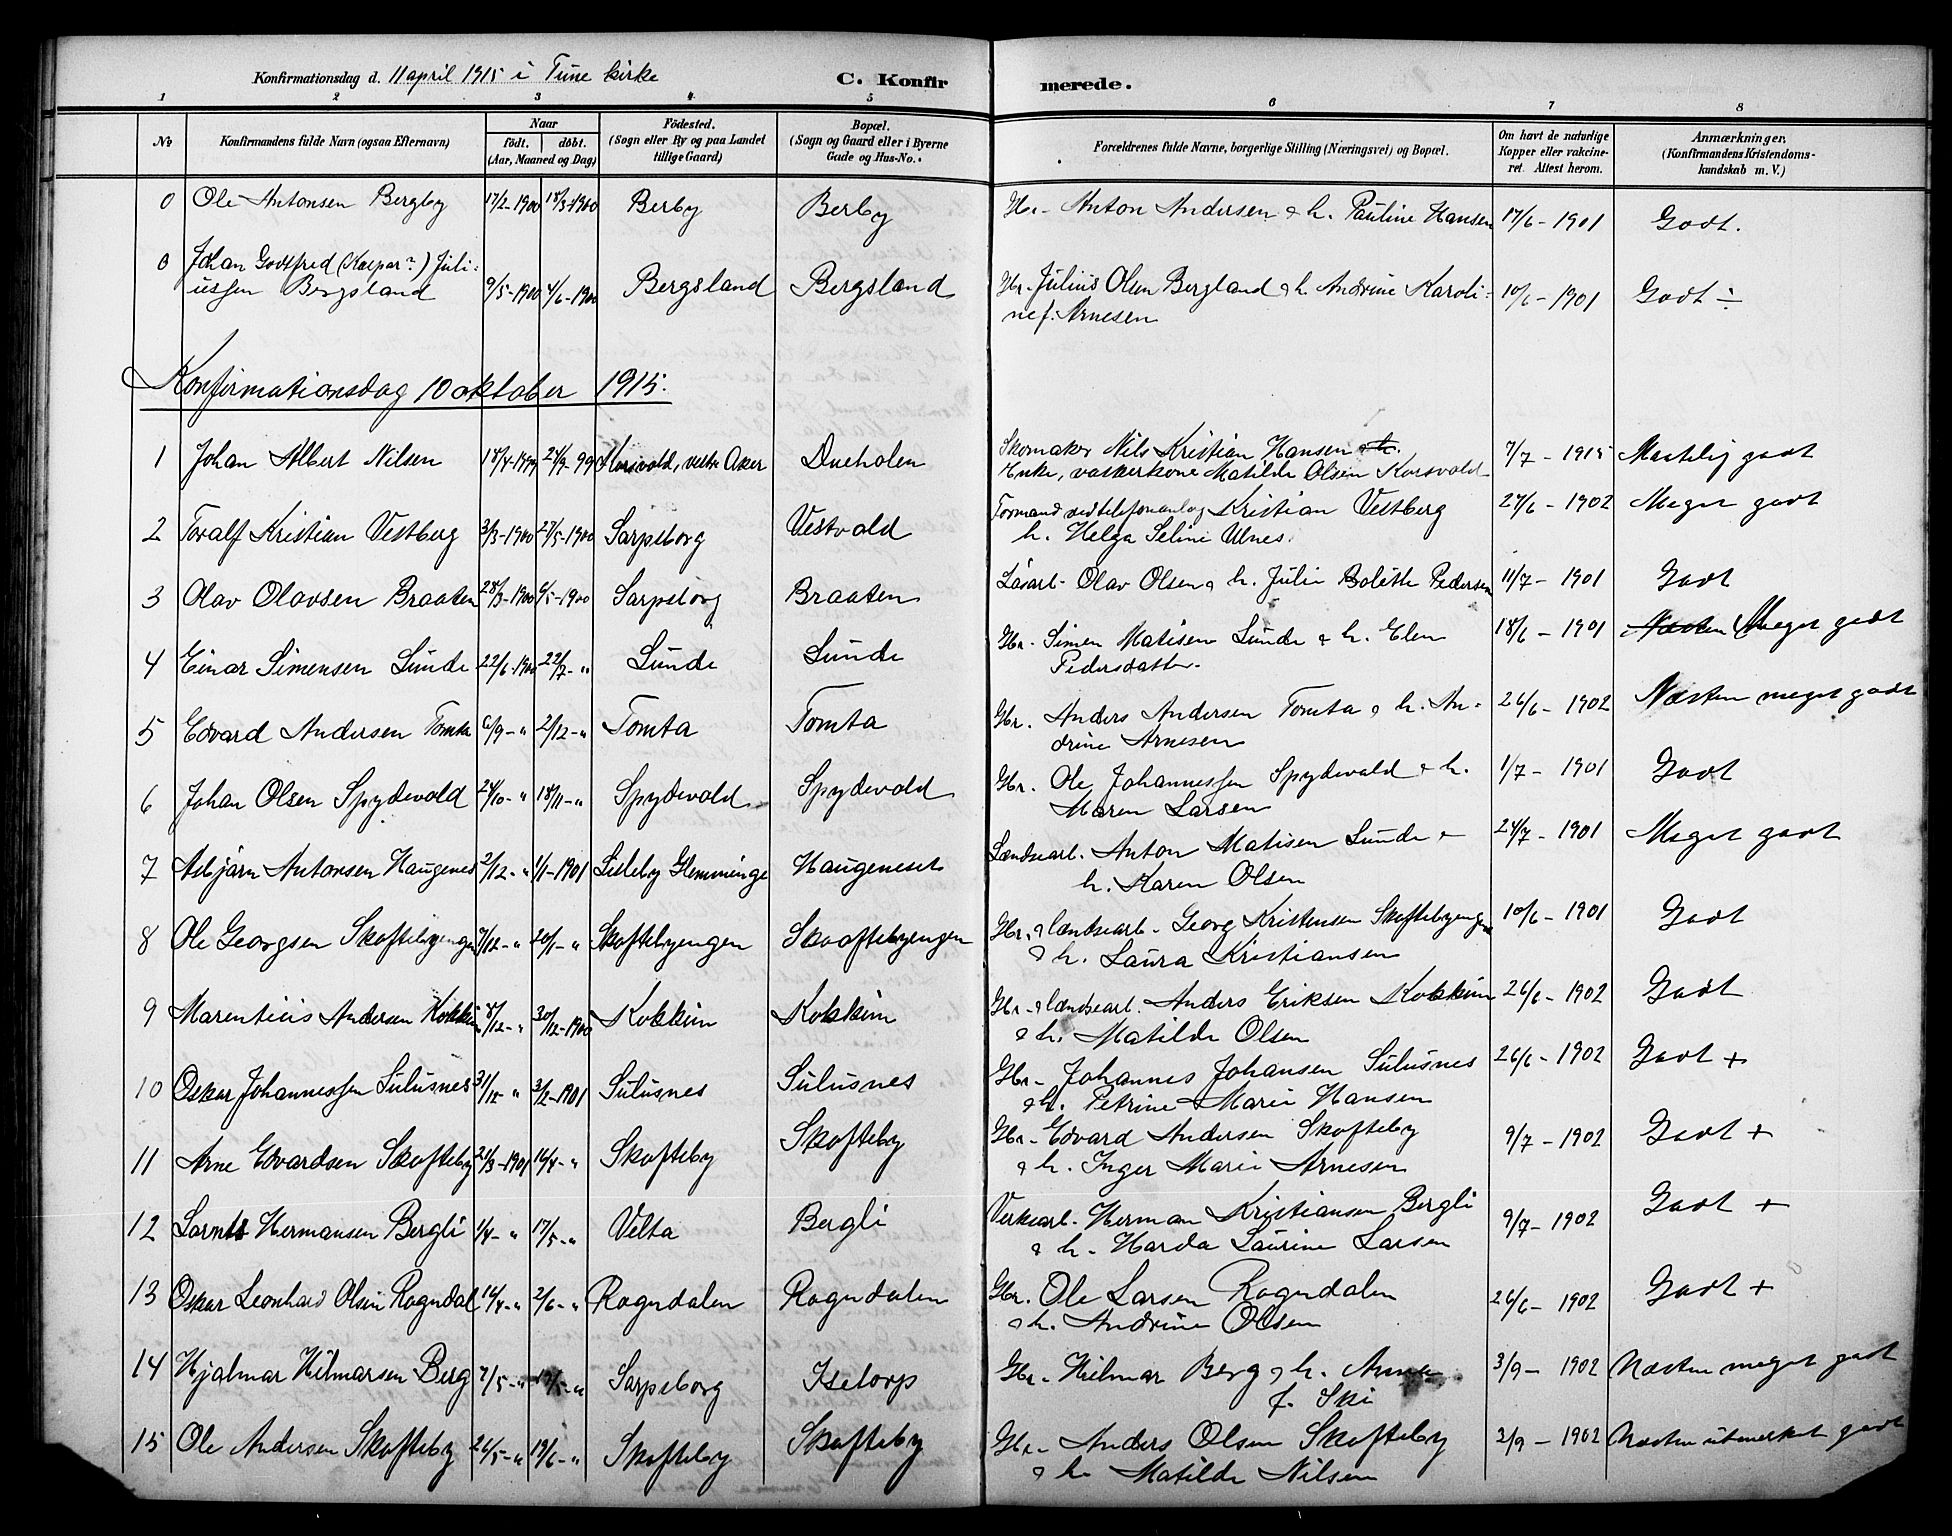 Konfirmationsdag d. 11 april 1915 i Tune kirke
C. Konfir
merede.
1 2 3 4 5 6 7 8
No
Konfirmandens fulde Navn (ogsaa Efternavn)
Naar
födt. döbt.
(Aar, Maaned og Dag)
Födested.
(Sogn eller By og paa Landet
tillige Gaard)
Bopæl.
(Sogn og Gaard eller i Byerne
Gade og Hus-No.)
Forældrenes fulde Navne, borgerlige Stilling (Næringsvei) og Bopæl.
Om havt de naturlige
Kopper eller vakcine-
ret. Attest herom.
Anmærkninger,
(Konfirmandens Kristendoms-
kundskab m. V.)
0 Ole Antonsen Bergby 17/2-1900 18/3-1900 Berby Berby Gbr. Anton Andersen & h. Pauline Hansen 17/6-1901 Godt.
0 Johan Godtfred (Kaspar?) Juli-
iussen Bergsland 9/5-1900 4/6-1900 Bergsland Bergsland Gbr. Julius Olsen Bergland & h. Andrine Karoli- 10/6-1901 Godt ÷
ne f. Arnesen
Konfirmationsdag 10 oktober 1915.
1 Johan Albert Nilsen 18/4-1899 24/9-99 vestre Aker Dueholen Skomaker Nils Kristian Hansen 7/7-1915 Maatelig godt
Enke, vaskerkone Matilde Olsen Korsvold
2 Toralf Kristian Vestberg 3/3-1900 27/5-1900 Sarpsborg Vestvold Formand ved telefonanlag Kristian Vestberg 27/6-1902 Meget godt
h. Helga Seline Ulnes.
3 Olav Olavsen Braaten 28/3-1900 6/5-1900 Sarpsborg Braaten Løsarb- Olav Olsen & h. Julie Bolette Pedersen 11/7-1901 Godt
4 Einar Simensen Lunde 22/6-1900 22/7-" Lunde Lunde Gbr. Simen Matisen Lunde & h. Elen 18/6-1901 Næsten Meget godt
Pedersdatter.
5 Edvard Andersen Tomta 6/9-" 2/12-" Tomta Tomta Gbr. Anders Andersen Tomta & h. An- 26/6-1902 Næsten meget godt
drine Arnesen
6 Johan Olsen Spydevold 24/10-" 18/11-" Spydevold Spydevold Gbr. Ole Johannessen Spydevold & h. 1/7-1901 Godt
Maren Larsen
7 Asbjørn Antonsen Haugenes 2/12-" 1/1-1901 Lisleby Glemminge Haugeneset Landsearb. Anton Matisen Lunde & 24/7-1901 Meget godt
h. Karen Olsen
8 Ole Georgsen Skoftebyengen 7/12-" 20/1-" Skoftebyengen Skooftebyengen Gbr. & landsearb. Georg Kristensen Skoftebyengen 10/6-1901 Godt
& h. Laura Kristiansen
9 Marentius Andersen Kokkim 8/12-" 30/12-1900 Kokkim Kokkim Gbr. & landsearb. Anders Eriksen Kokkim 26/6-1902 Godt
& h. Matilde Olsen
10 Oskar Johannessen Sulusnes 31/12 " 3/2-1901 Sulusnes Sulusnes Gbr- Johannes Johansen Sulusnes 26/6-1902 Godt +
& h. Petrine Marie Hansen
11 Arne Edvardsen Skofteby 21/3-1901 16/4-" Skofteby Skofteby Gbr- Edvard Andersen Skofteby 9/7-1902 Godt +
& h. Inger Marie Arnesen
12 Hermansen Bergli 1/4-" 17/5-" Velta Bergli Verksarb. Herman Kristiansen Bergli 9/7-1902 Godt +
& h. Harda Laurine Larsen
13 Oskar Leonhard Olsen Rogndal 16/4-" 2/6-" Rogndalen Rogndalen Gbr. Ole Larsen Rogndalen 26/6-1902 Godt +
& h. Andrine Olsen
14 Hjalmar Hilmarsen Berg 7/5-" Sarpsborg Isetorp Gbr- Hilmar Berg & h. Anna 3/9-1902 Næsten meget godt
f. Ski
15 Ole Andersen Skofteby 26/5-" 19/6-" Skofteby Skofteby Gbr- Anders Olsen Skofteby 3/9-1902 Næsten utmerket godt
& h. Matilde Nilsen